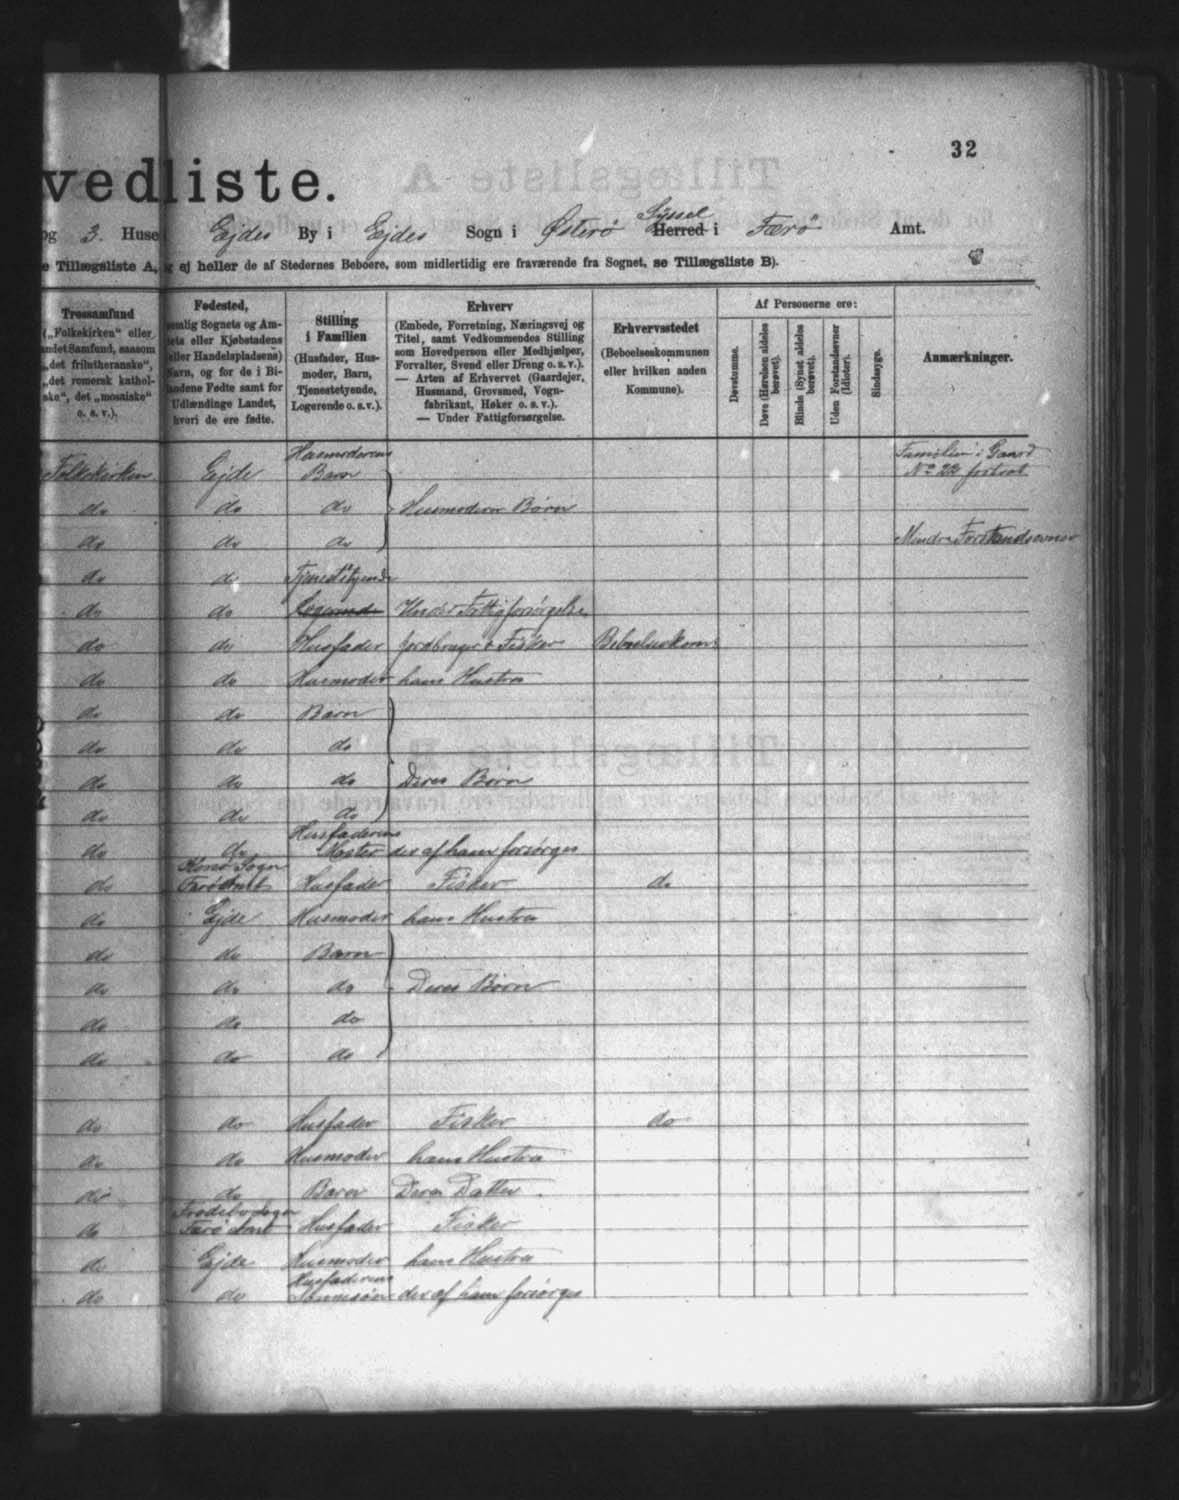 32
vedliste.
og 3. Huse Ejdes By i Ejdes Sogn i Østerø Syssel Herred i Færø Amt.
e Tillægsliste A, og ej heller de af Stedernes Beboere, som midlertidig ere fraværende fra Sognet, se Tillægsliste B).
Trossamfund
(„Folkekirken“ eller
andet Samfund, saasom
„det frilutheranske“,
„det romersk kathol-
ske“, det „mosaiske“
o. s. v.).
Fødested,
nemlig Sognets og Am-
tets eller Kjøbstadens
(eller Handelspladsens)
Navn, og for de i Bi-
landene Fødte samt for
Udlændinge Landet,
hvori de ere fødte.
Stilling
i Familien
(Husfader, Hus-
moder, Barn,
Tjenestetyende,
Logerende o. s. v.).
Erhverv
(Embede, Forretning, Næringsvej og
Titel, samt Vedkommendes Stilling
som Hovedperson eller Medhjælper,
Forvalter, Svend eller Dreng o. s. v.).
— Arten af Erhvervet (Gaardejer,
Husmand, Grovsmed, Vogn-
fabrikant, Høker o. s. v.).
— Under Fattigforsørgelse.
Erhvervsstedet
(Beboelseskommunen
eller hvilken anden
Kommune).
Af Personerne ere:
Døvstumme.
Døve (Hørelsen aldeles
berøvet).
Blinde (Synet aldeles
berøvet).
Uden Forstandsevner
(Idioter).
Sindssyge.
Anmærkninger.
Folkekirken Ejde Husmoderens Barn Familien i Gaard No 22 fortsat
do do do Husmoderens Børn
do do do Mindre Forstandsevner
do do Tjenestetyende
do do Logerende Under Fattigforsørgelse
do do Husfader Jordbruger & Fisker Beboelseskom:
do do Husmoder hans Hustru
do do Barn
do do do
do do do Deres Børn
do do do
do do Husfaderens Moster der af ham forsørges
do Sogn Færø Amt Husfader Fisker do
do Ejde Husmoder hans Hustru
do do Barn
do do do Deres Børn
do do do
do do do
do do Husfader Fisker do
do do Husmoder hans Hustru
do do Barn Deres Datter
do Frodebo Sogn Færø Amt Husfader Fisker
do Ejde Husmoder hans Hustru
do do Husfaderens Sønnesøn der af ham forsørges